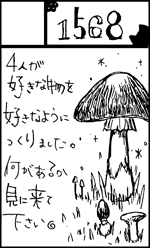 1568
4人が
好きな物を
好きなように
つくりました。
何があるか
見に来て
下さい。